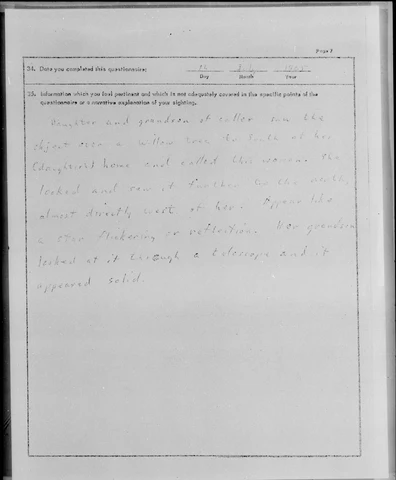 Page 8
34. Date you completed this questionnaire:
Day Month Year
35. Information which you feel pertinent and which is not adequately covered in the specific points of the
questionnaire or a narrative explanation of your sighting.
Daughter and grandson of caller saw the
object over a willow tree to South of her
(daughter) home and called this woman. She
looked and saw it further to the
almost directly west of her. Appear like
a star flickering or reflection. Her grandson
looked at it through a telescope and it
appeared solid.